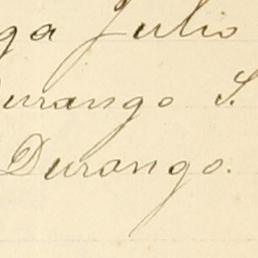 ga Julio
Durango S.
Durango.